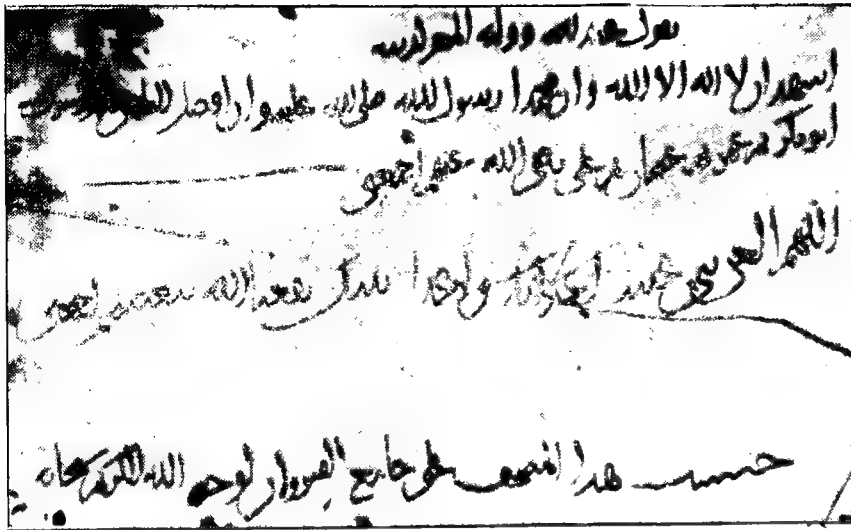 يقول عبد الله ووليه المعز لدينه
اشهد ان لا اله الا الله وان محمدا رسول الله صلى الله عليه وان افضل الناس
ابو بكر ثم عمر ثم عثمان ثم علي رضي الله عنهم اجمعين
اللهم العن بني عبيد نفعه الله اجمعين
حبست هذا المصحف على جامع القيروان لوجه الله الكريم سبحانه